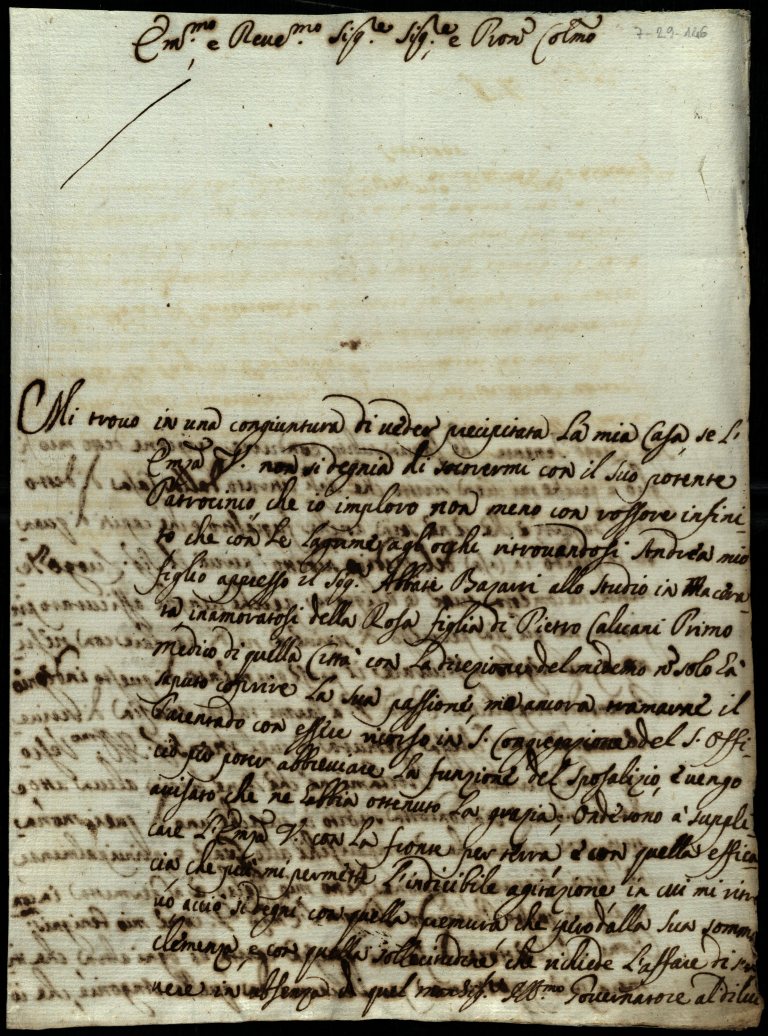 Em.mo e Reve.mo Sig.re Sig.re e Pron Colmo
7-29-146
Mi trovo in una congiuntura di veder precipitata La mia Casa, se L'
Emza V. non si degna di socorermi con il suo potente
Patrocinio, che io imploro non meno con rossore infini-
to che con Le Lagrime agl'ochi ritrovandosi Andrea mio
figlio appresso il Sig.r Abbate Bajarri allo studio in Macera-
ta, inamoratosi della Rosa figlia di Pietro Calvani Primo
medico di quella Città con La direzione del medemo nō solo Là
saputo coprire La sua passione, mà ancora tramarne il
Parentado con essere ricorso in S. Congregazione del S. Offi-
cio p potter abbreviare La funzione del sposalizio, e vengo
avisato che ne Labbia ottenuto La grazia; Onde sono à suppli-
care L'Emza V. con La fronte per terra è con quella effica-
cia che può mi permette L'indicibile agitazione, in cui mi ritro-
vo acciò si degni con quella premura che spero dalla sua somma
clemenza, e con quella sollecitudine, che richiede L'affare di scri-
vere in assenza di quel Monsig.re Ill.mo Governatore al di lui